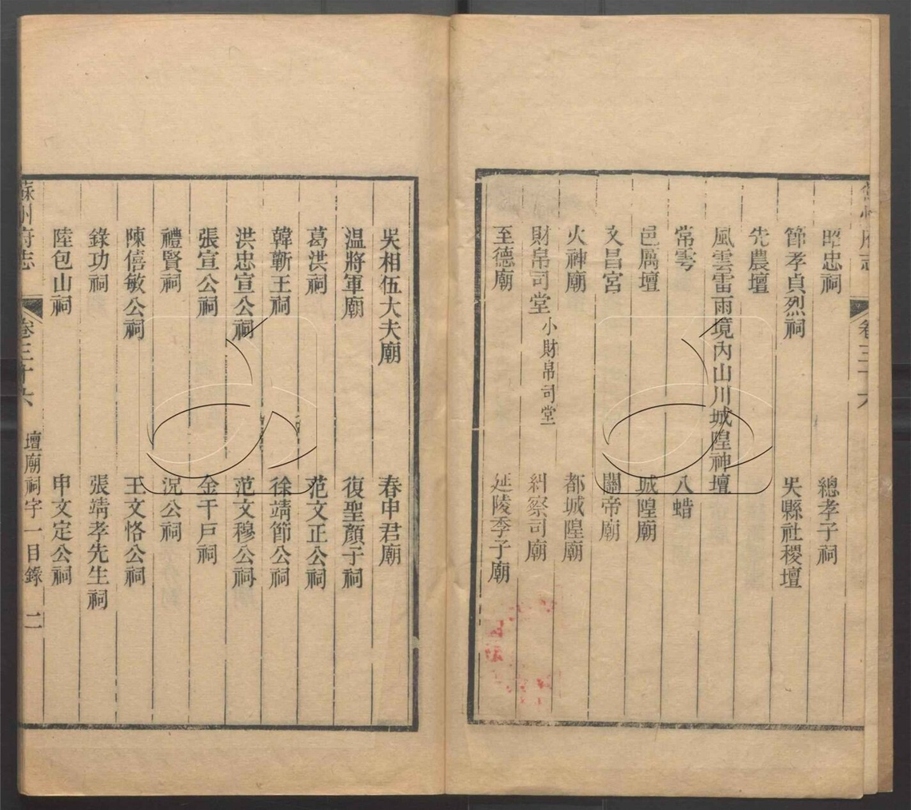 蘇州府志 卷三十六
昭忠祠 總孝子祠
節孝貞烈祠 吳縣社稷壇
先農壇
風雲雷雨境內山川城隍神壇
常雩 八蜡
邑厲壇 城隍廟
文昌宮 關帝廟
火神廟 都城隍廟
財帛司堂 小財帛司堂 糾察司廟
至德廟 延陵季子廟
吳相伍大夫廟 春申君廟
温將軍廟 復聖顏子祠
葛洪祠 范文正公祠
韓蘄王祠 徐靖節公祠
洪忠宣公祠 范文穆公祠
張宣公祠 金千戶祠
禮賢祠 況公祠
陳僖敏公祠 王文恪公祠
錄功祠 張靖孝先生祠
陸包山祠 申文定公祠
蘇州府志 卷三十六 壇廟祠宇一目錄 二